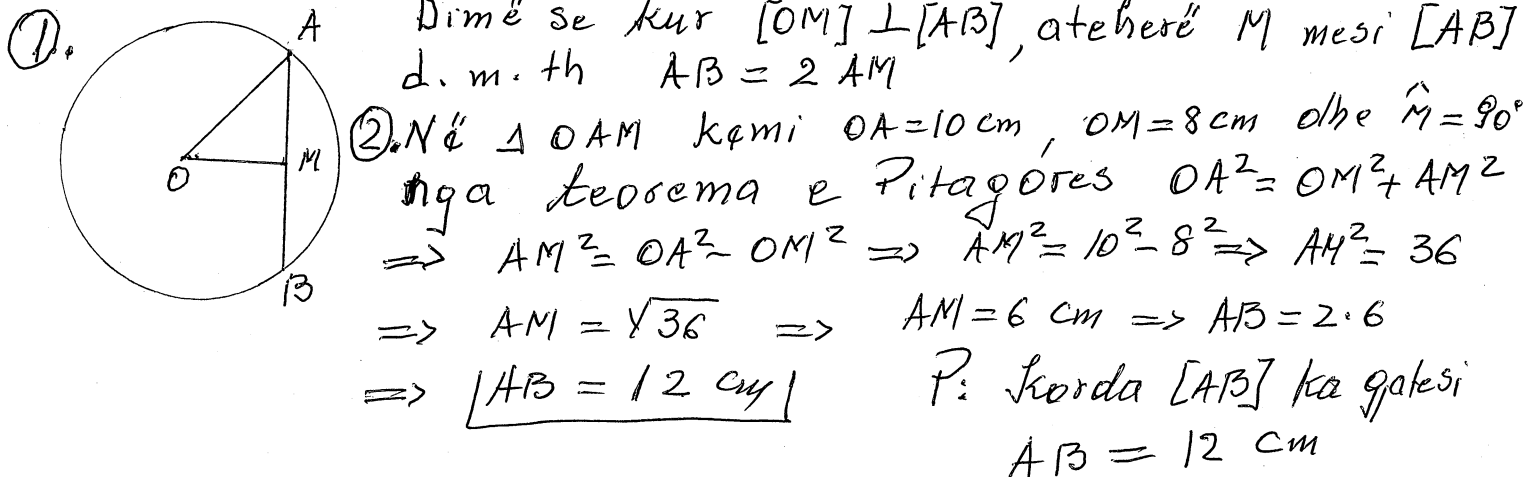 ①. Dimë se kur [OM] ⊥ [AB], ateherë M mesi [AB]
d.m.th AB = 2 AM
②. Në Δ OAM kemi OA = 10 cm, OM = 8 cm dhe M̂ = 90°
nga teorema e Pitagóres OA² = OM² + AM²
=> AM² = OA² - OM² => AM² = 10² - 8² => AM² = 36
=> AM = √36 => AM = 6 cm => AB = 2·6
=> |AB = 12 cm| P: Korda [AB] ka gjatesi
AB = 12 cm
A
O
M
B